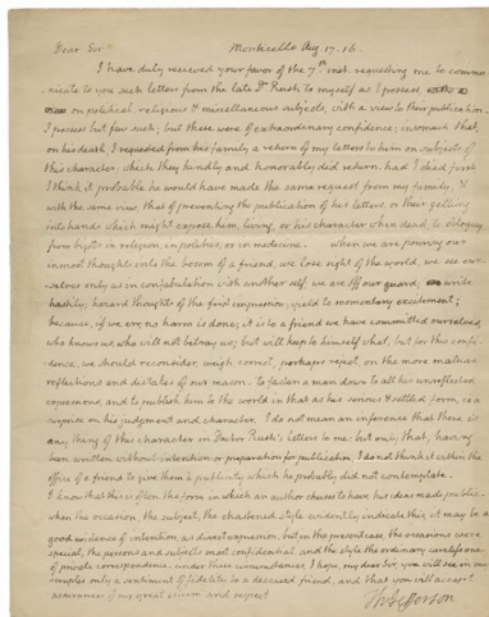 Dear Sir Monticello Aug. 17. 16.
I have duly recieved your favor of the 7th inst. requesting me to commu-
nicate to you such letters from the late Dr. Rush to myself as I possess,
on political, religious & miscellaneous subjects, with a view to their publication.
I possess but few such; but these were of extraordinary confidence; insomuch that,
on his death, I requested from his family a return of my letters to him on subjects of
this character, which they kindly and honorably did return. had I died first
I think it probable he would have made the same request from my family, &
with the same view, that of preventing the publication of his letters, or their getting
into hands which might expose him, living, or his character when dead, to
from bigots in religion, in politics, or in medecine. when we are pouring our
inmost thoughts into the bosom of a friend, we lose sight of the world, we see our-
-selves only as in confabulation with another self, we are off our guard; write
hastily; hazard thoughts of the first impression; yield to momentary excitement;
because, if we err, no harm is done; it is to a friend we have committed ourselves,
who knows us, who will not betray us; but will keep to himself what, but for this confi-
dence, we should reconsider, weigh, correct, perhaps reject, on the more mature
reflections and dictates of our reason. to fasten a man down to all his unreflected
expressions, and to publish him to the world in that as his serious & settled form, is a
surprise on his judgment and character. I do not mean an inference that there is
any thing of this character in Doctor Rush's letters to me: but only, that, having
been written without intention or preparation for publication, I do not think it within the
office of a friend to give them a publicity which he probably did not contemplate.
I know that this is often the form in which an author chuses to have his ideas made public.
when the occasion, the subject, the chastened style evidently indicate this, it may be as
good evidence of intention, as direct expression. but in the present case, the occasions were
special, the persons and subjects most confidential, and the style the ordinary careless one
of private correspondence. under these circumstances, I hope, my dear Sir, you will see in my
scruples only a sentiment of fidelity to a deceased friend, and that you will accept
assurances of my great esteem and respect
Th: Jefferson